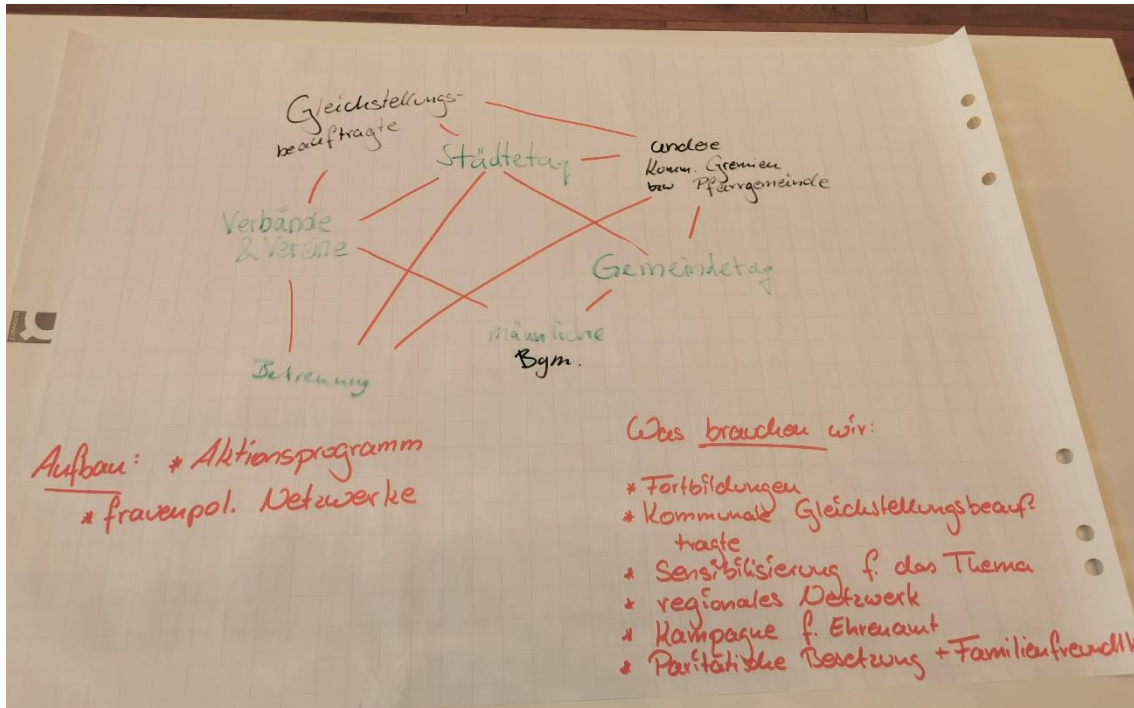 Gleichstellungs-
beauftragte
Städtetag
andere
Komm. Gremien
bzw Pfarrgemeinde
Verbände
& Vereine
Gemeindetag
männliche
Bgm.
Betreuung
Aufbau: * Aktionsprogramm
* frauenpol. Netzwerke
Was brauchen wir:
* Fortbildungen
* Kommunale Gleichstellungsbeauf-
tragte
* Sensibilisierung f. das Thema
* regionales Netzwerk
* Kampagne f. Ehrenamt
* Paritätische Besetzung + Familienfreundl